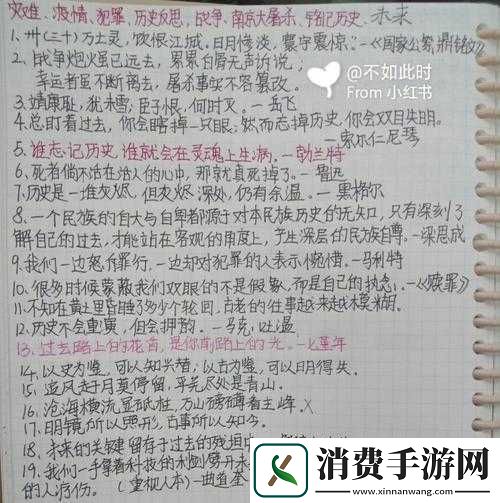 灾难、疫情、犯罪、历史反思,战争、南京大屠杀、铭记历史、未来
1、卅(三十)万亡灵,饮恨江城。日月惨淡,寰宇震惊。—《国家公祭鼎铭文》
2、战争炮火虽已远去,累累白骨无声诉说;
幸运者虽不断离去,屠杀事实不容篡改。
3、靖康耻,犹未雪;臣子恨,何时灭。—岳飞
4、总盯着过去,你会瞎掉一只眼;然而忘掉历史,你会双目失明。
—索尔仁尼琴
5、谁忘记历史,谁就会在灵魂上生病。—勃兰特
6、死者倘不活在活人的心中,那就真死掉了。—鲁迅
7、历史是一堆灰烬,但灰烬深处,仍有余温。—黑格尔
8、一个民族的自大与自卑都源于对本民族历史的无知,只有深刻了
解自己的过去,才能站在客观的角度上,产生深层的民族自尊。—梁思成
9、我们一边怒斥罪行,一边却对犯罪的人表示惋惜。—马利特
10、很多时候蒙蔽我们双眼的不是假象,而是自己的执念。—《赎罪》
11、不知在黄土里昏睡了多少个轮回,古老的往事越来越模糊。
12、历史不会重演,但会押韵。—马克·吐温
13、过去路上的花香,是你前路上的光。—七堇年
14、以史为鉴,可以知兴替,以古为鉴,可以明得失。
15、追风赶月莫停留,平芜尽处是青山。
16、沧海横流显砥柱,万山磅礴看主峰。
17、明镜所以照形,古事所以知今。
18、未来的关键留存于过去的残垣中
19、我们一手擎着科技的
的人身份。(重
@不如此时
From 小红书
消费手游网
www.xinnanwang.com